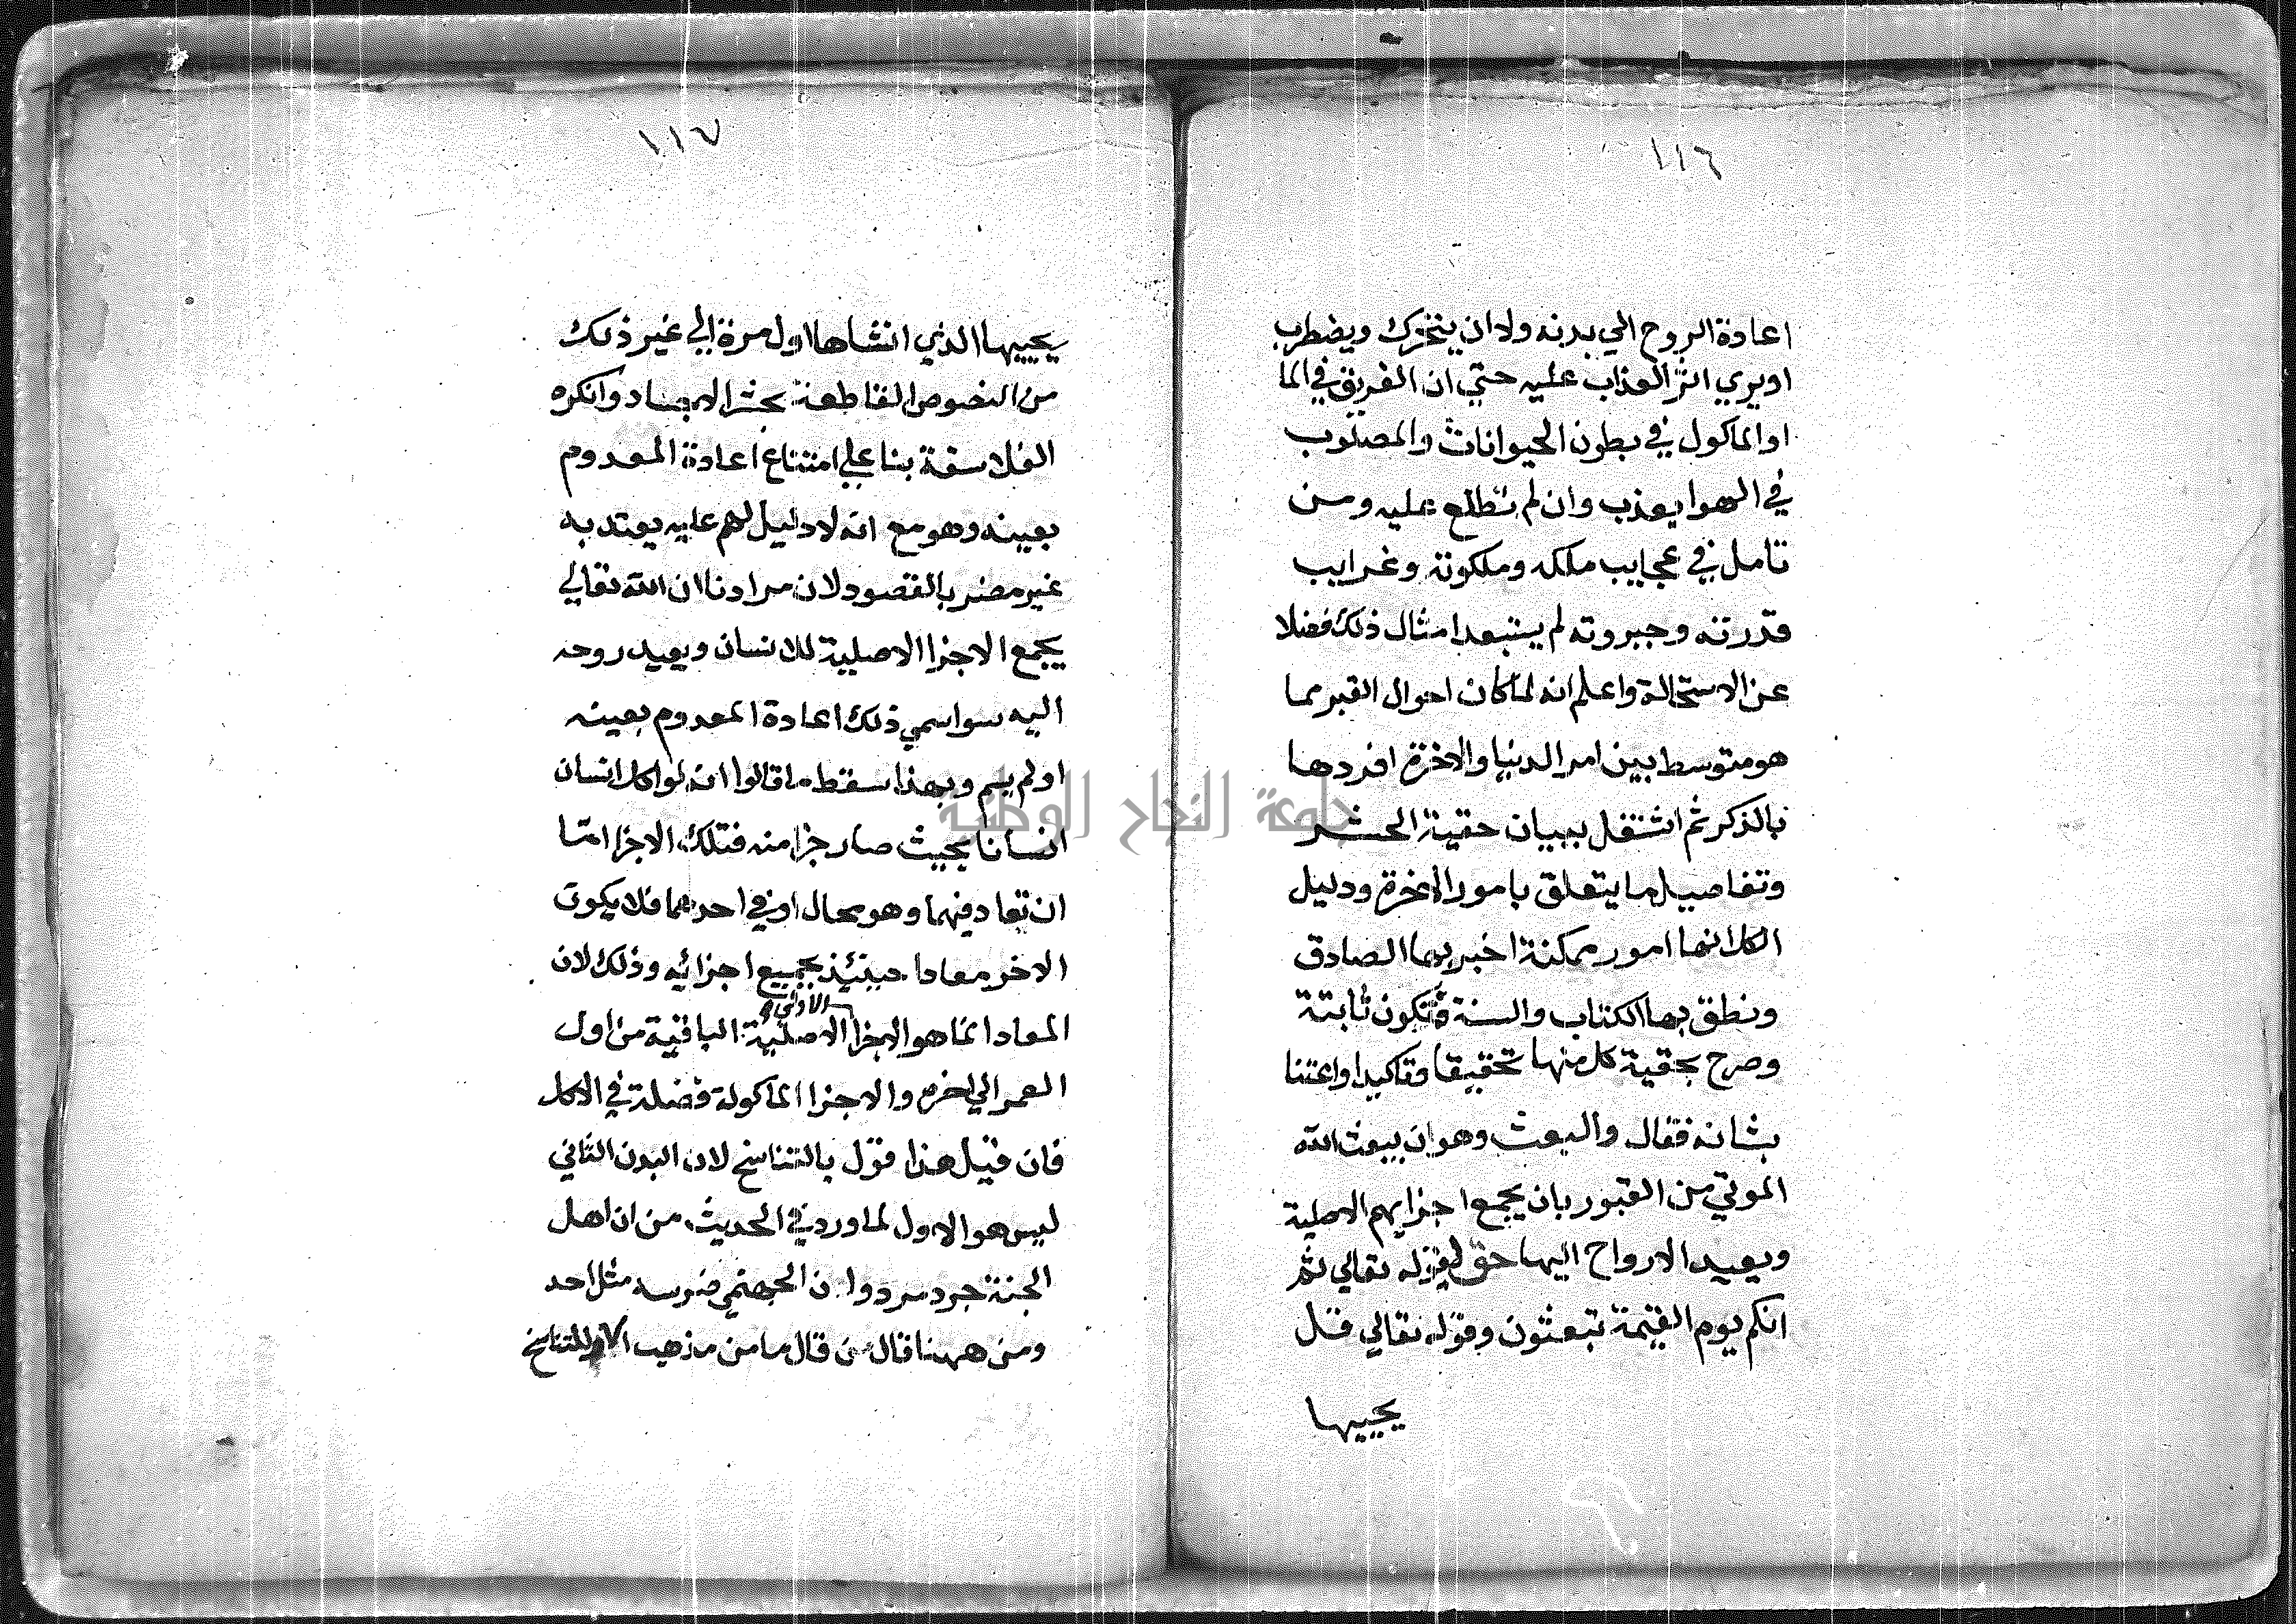 ١١٦
اعادة الروح الي بدنه ولا ان يتحرك ويضطرب
اويري اثر العذاب عليه حتي ان الغريق في الما
او الماكول في بطون الحيوانات والمصلوب
في الهوا يعذب وان لم نطلع عليه ومن
تامل في عجايب ملكه وملكوته وغرايب
قدرته وجبروته لم يستبعد امثال ذلك فضلا
عن الاستحالة واعلم انه لما كان احوال القبر مما
هو متوسط بين امر الدنيا والاخرة افردها
بالذكر ثم اشتغل ببيان حقية الحشر
وتفاصيل ما يتعلق بامور الاخرة ودليل
الكل انها امور ممكنة اخبر بها الصادق
ونطق بها الكتاب والسنة فتكون ثابتة
وصرح بحقية كل منها تحقيقا وتاكيدا واعتنا
بشانه فقال والبعث وهو ان يبعث الله
الموتي من القبور بان يجمع اجزايهم الاصلية
ويعيد الارواح اليها حق لقوله تعالي ثم
انكم يوم القيمة تبعثون وقوله تعالي قل
يحييها
١١٧
يحييها الذي انشاها اول مرة الي غير ذلك
من النصوص القاطعة بحشر الاجساد وانكره
الفلاسفة بنا علي امتناع اعادة المعدوم
بعينه وهو مع انه لا دليل لهم عليه يعتد به
غير مضر بالقصود لان مرادنا ان الله تعالي
يجمع الاجزا الاصلية للانسان ويعيد روحه
اليه سوا سمي ذلك اعادة المعدوم بعينه
او لم يسم وبهذا سقط ما قالوا انه لو اكل انسان
انسانا بحيث صار جزا منه فتلك الاجزا اما
ان تعاد فيهما وهو محال او في احدهما فلا يكون
الاخر معادا حينئذ بجميع اجزائه وذلك لان
المعاد انما هو الاجزا الاصلية الباقية من اول
العمر الي اخره والاجزا الماكولة فضلة في الاكل
فان قيل هذا قول بالتناسخ لان البدن الثاني
ليس هو الاول لما ورد في الحديث من ان اهل
الجنة جرد مرد وان الجهنمي ضرسه مثل احد
ومن ههنا قال من قال ما من مذهب الا وللتناسخ
جامعة النجاح الوطنية